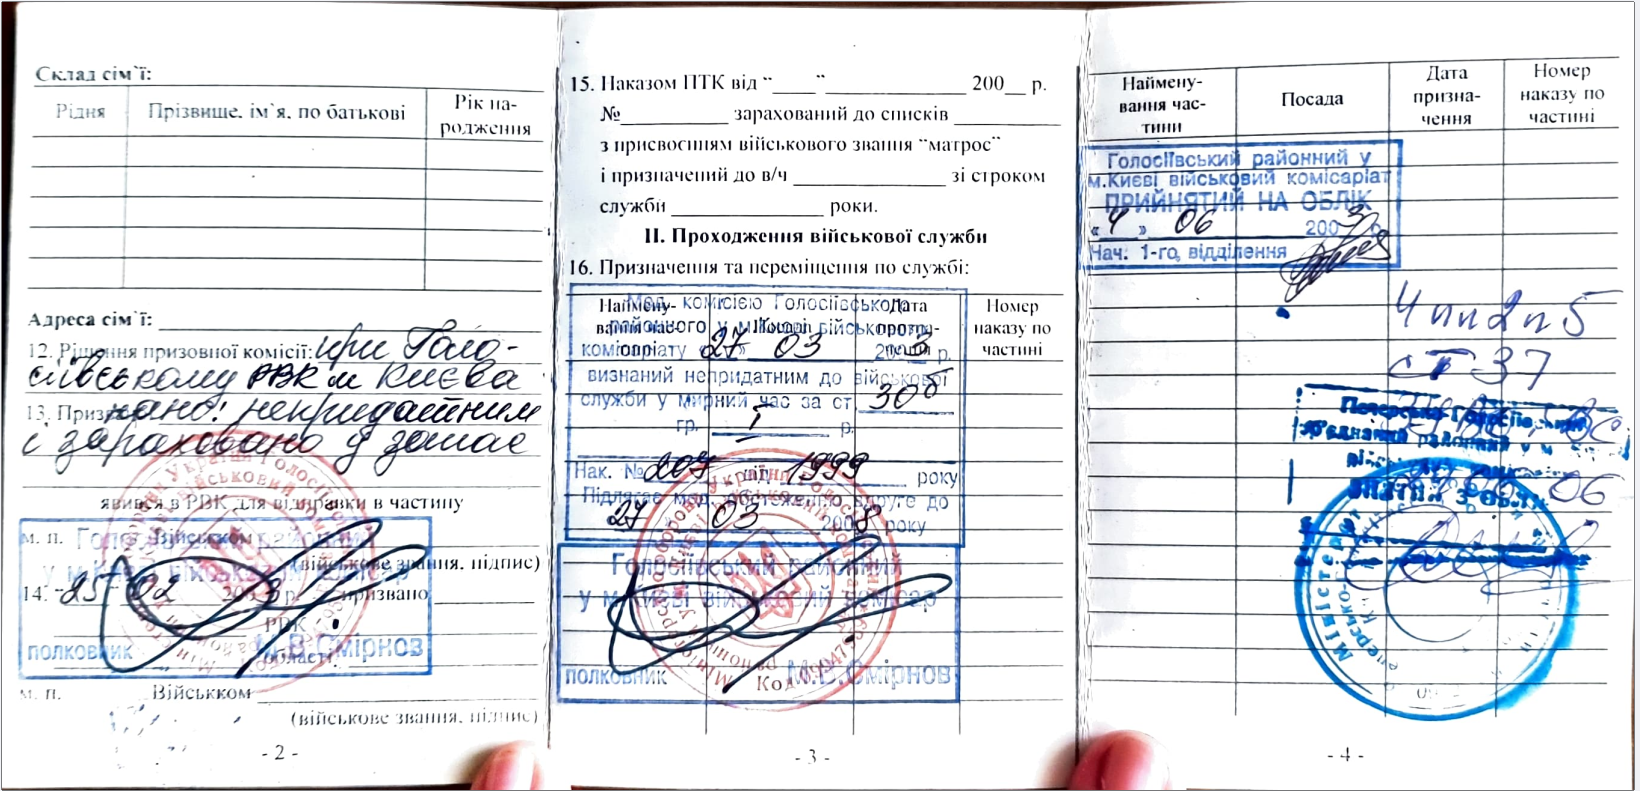 Склад сім`ї:
Рідня Прізвище, ім`я, по батькові Рік на-
родження
Адреса сім`ї:
12. Рішення призовної комісії: при Голо-
сіївському РВК м Києва
13. Призвано: непридатним
і зараховано у запас
явився в РВК для відправки в частину
м. п. Військком
(військове звання, підпис)
Голосіївський районний
у м.Києві військовий комісар
14. "25" 02 200 3 р. призвано
РВК
області
полковник М.В.Смірнов
м. п. Військком
(військове звання, підпис)
- 2 -
15. Наказом ПТК від “____” ____ 200__ р.
№ ____ зарахований до списків ____
з присвоєнням військового звання “матрос”
і призначений до в/ч ____ зі строком
служби ____ роки.
II. Проходження військової служби
16. Призначення та переміщення по службі:
Наймену-
вання час-
тини Посада Дата
призна-
чення Номер
наказу по
частині
Мед. комісією Голосіївського
районного у м.Києві військового
комісаріату «27» 03 200 3 р.
визнаний непридатним до військової
служби у мирний час за ст. 30б
гр. I р.
Нак. № 207 від 1999 року
Підлягає мед. обстеженню вдруге до
27 03 2008 року
Голосіївський районний
у м.Києві військовий комісар
полковник М.В.Смірнов
Код 09947
- 3 -
Наймену-
вання час-
тини Посада Дата
призна-
чення Номер
наказу по
частині
Голосіївський районний у
м.Києві військовий комісаріат
ПРИЙНЯТИЙ НА ОБЛІК
«4» 06 200 3 р.
Нач. 1-го, відділення
4 пп 2 п 5
ст 37
Печерсько-Голосіївський
об'єднаний районний у м
06
- 4 -